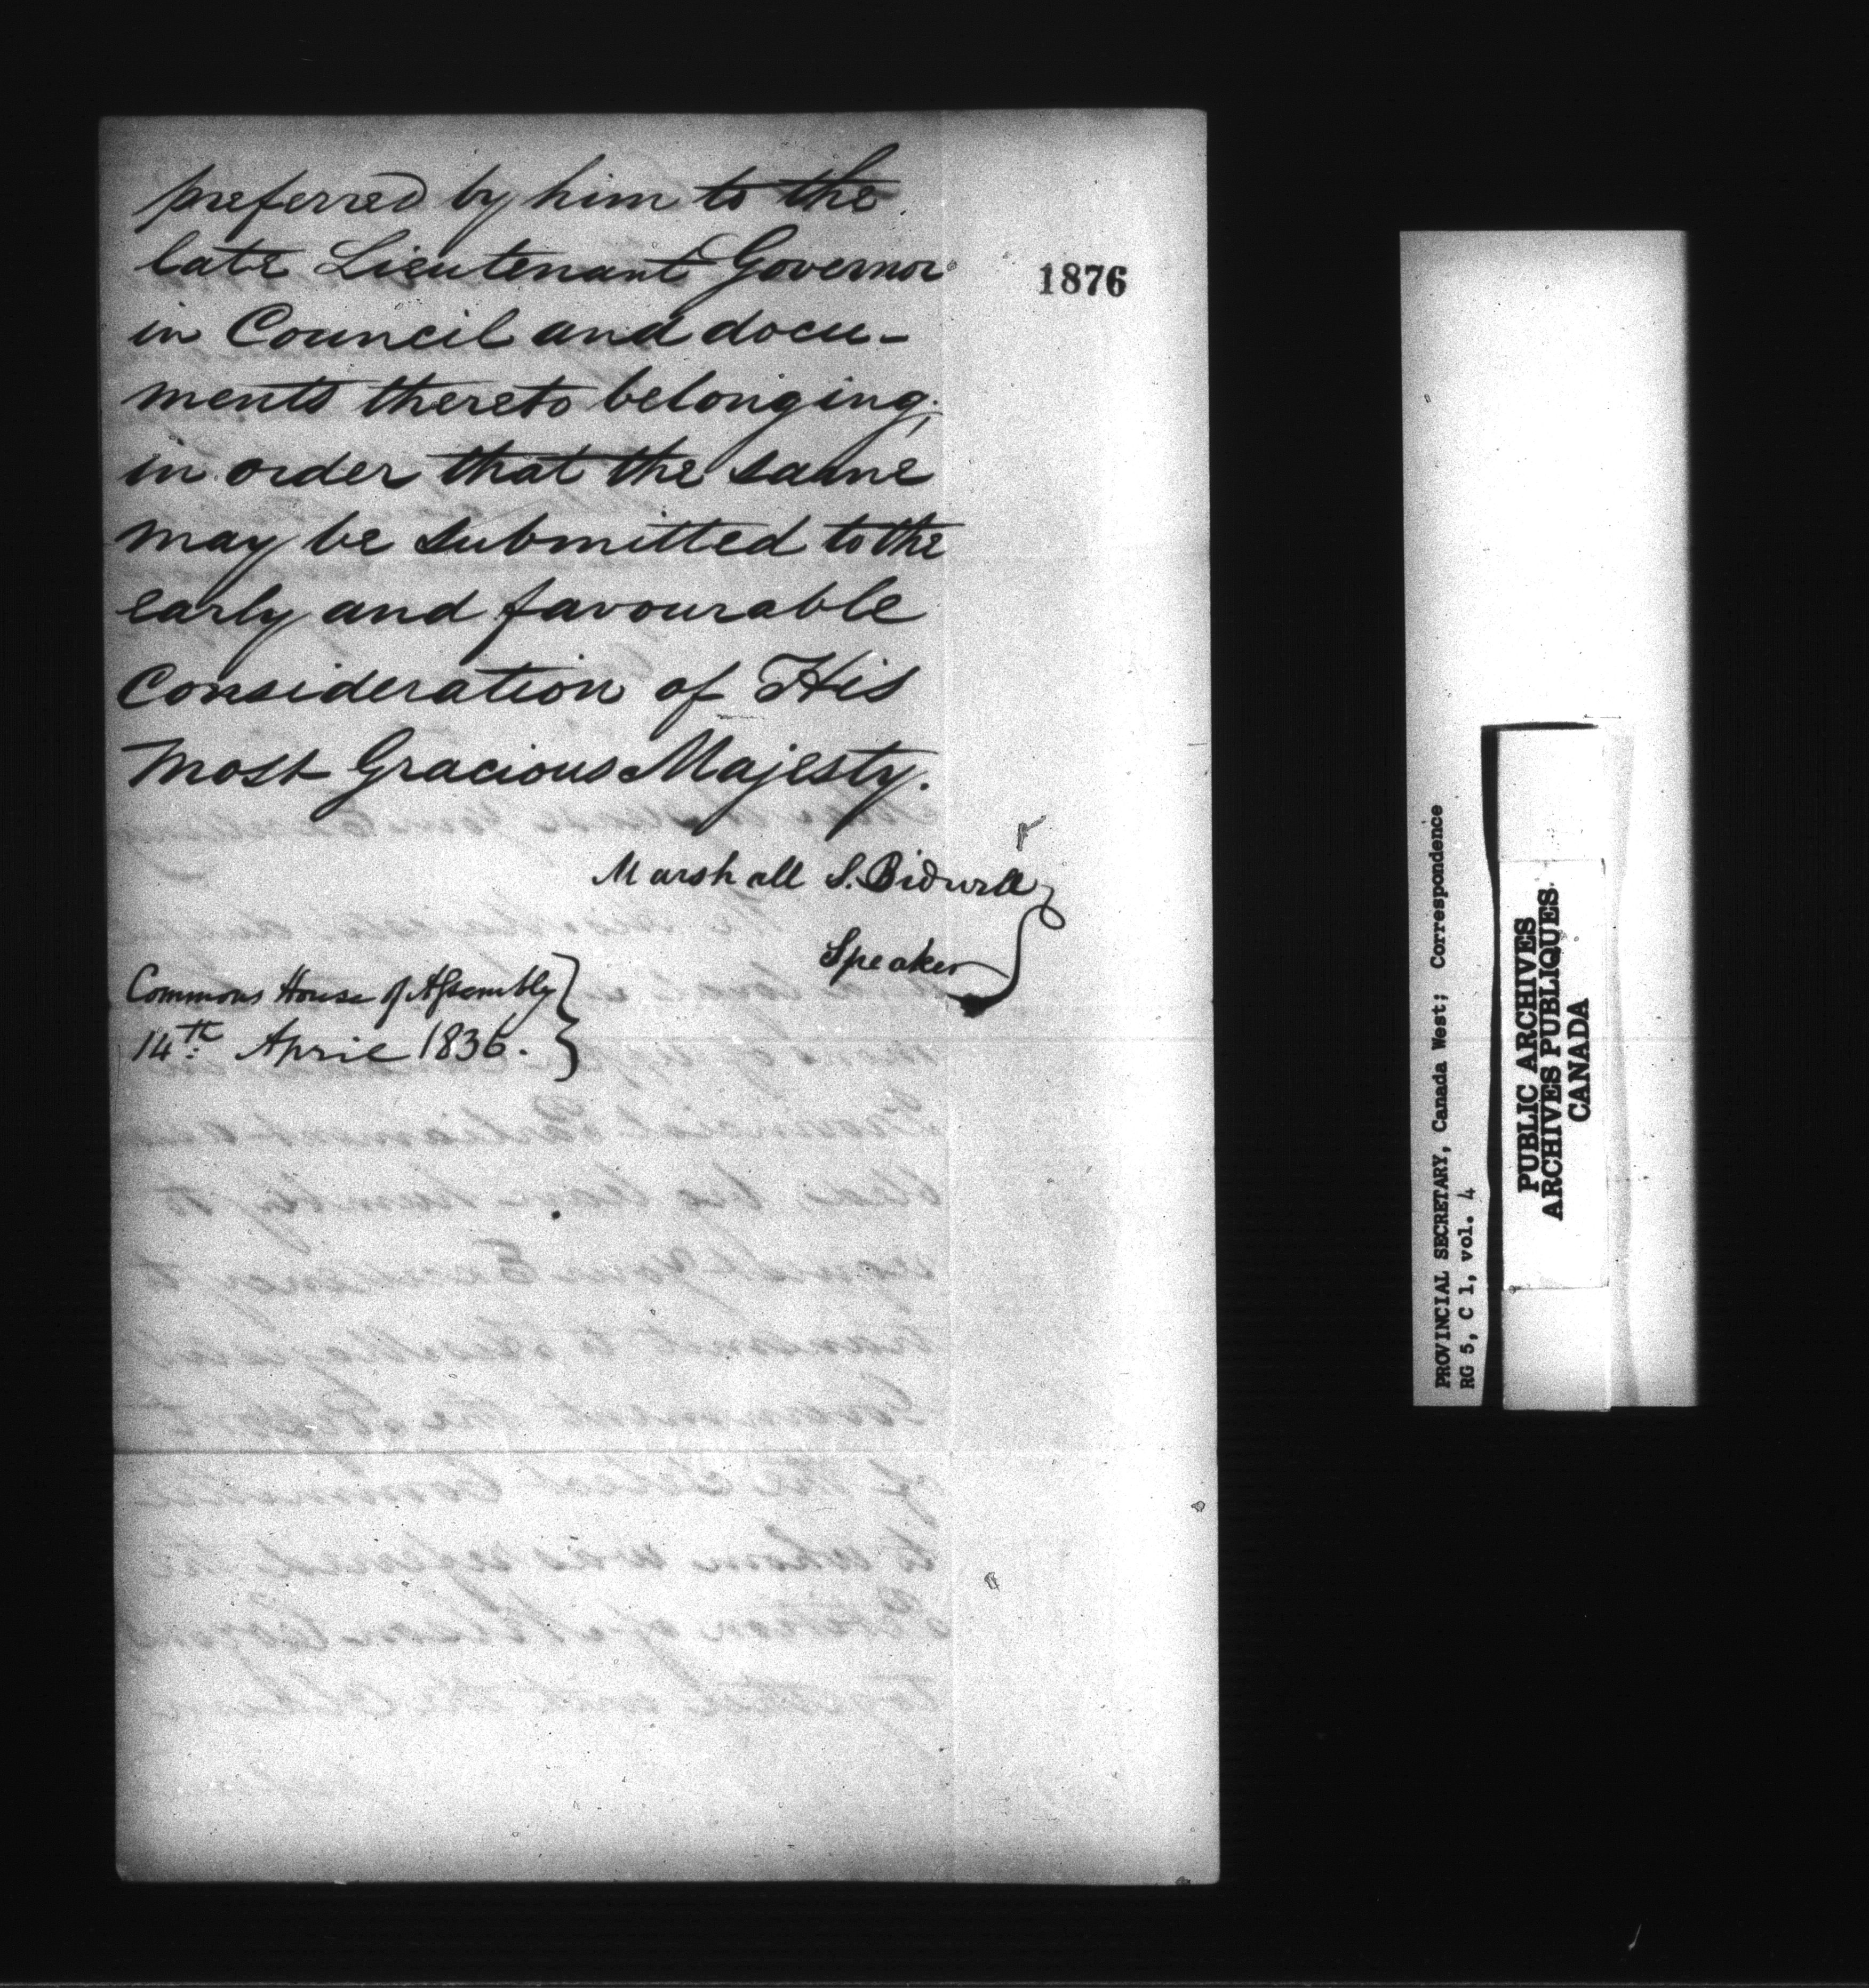 preferred by him to the
late Lieutenant Governor
in Council and docu-
ments thereto belonging,
in order that the same
may be submitted to the
early and favourable
Consideration of His
Most Gracious Majesty.
Marshall S. Bidwell
Speaker
Commons House of Assembly
14th April 1836.
1876
PROVINCIAL SECRETARY, Canada West; Correspondence
RG 5, C 1, vol. 4
PUBLIC ARCHIVES
ARCHIVES PUBLIQUES
CANADA